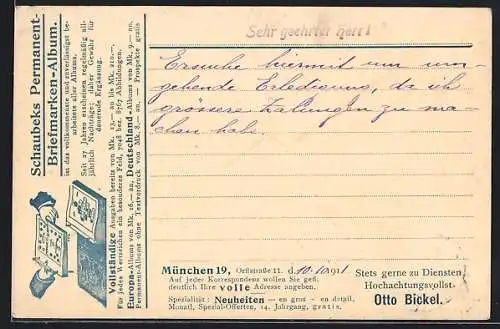 Schaubeks Permanent-
Briefmarken-Album.
ist das vollkommenste und zuverlässigst be-
arbeitete aller Albums.
Seit 27 Jahren erscheinen regelmäßig all-
jährlich Nachträge; daher Gewähr für
dauernde Ergänzung.
Vollständige Ausgaben bereits von Mk. 15.— an bis Mk.
Für jedes Wertzeichen ein besonderes Feld, Abbildungen.
Europa-Albums von Mk. 16.— an, Deutschland-Albums von Mk. 9.— an.
Permanent-Albums ohne Textvordruck von Mk. 8.— an. — Prospekte gratis
Sehr geehrter Herr!
Ersuche hiermit um um-
gehende Erledigung, da ich
grössere Zalungen zu ma-
chen habe.
München 19, Orffstraße 11. d. 10.10. 1911
Auf jeder Korrespondenz wollen Sie gefl.
deutlich Ihre volle Adresse angeben.
Spezialität: Neuheiten — en gros - en detail,
Monatl. Spezial-Offerten, 14. Jahrgang, gratis.
Stets gerne zu Diensten
Hochachtungsvollst
Otto Bickel.